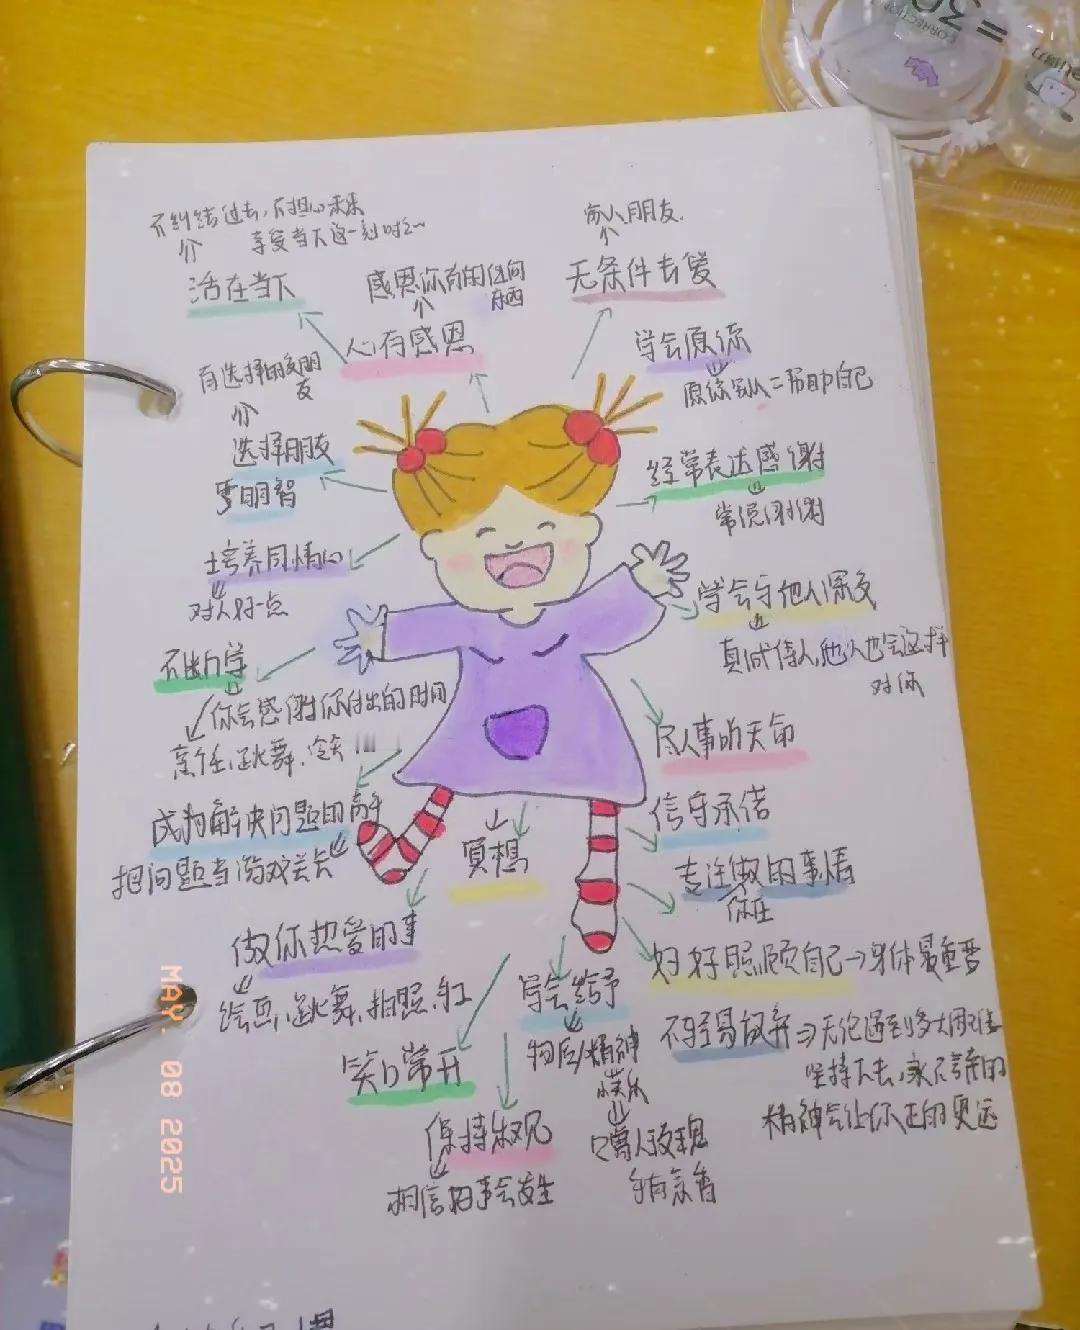 不纠结过去,不担心未来
享受当下这一刻时光~
活在当下
感恩你有的任何
东西
心有感恩
家人朋友.
无条件去爱
学会原谅
原谅别人=帮助自己
有选择的交朋
友
选择朋友
要明智
经常表达感谢
常说谢谢
培养同情心
对人好一点
学会与他人深交
真诚待人,他人也会这样
对你
不断学
你会感谢你付出的时间
烹饪、跳舞、
尽人事听天命
信守承诺
成为解决问题的高手
把问题当游戏关卡
冥想
专注做的事情
你在
做你热爱的事
绘画、跳舞、拍照、
好好照顾自己→身体最重要
学会给予
物质/精神
快乐
赠人玫瑰
手有余香
不轻易放弃⇒无论遇到多大困难
坚持下去,永不言弃的
精神会让你走的更远
笑口常开
保持乐观
相信好事会发生
MAY. 08 2025
CORRECTION